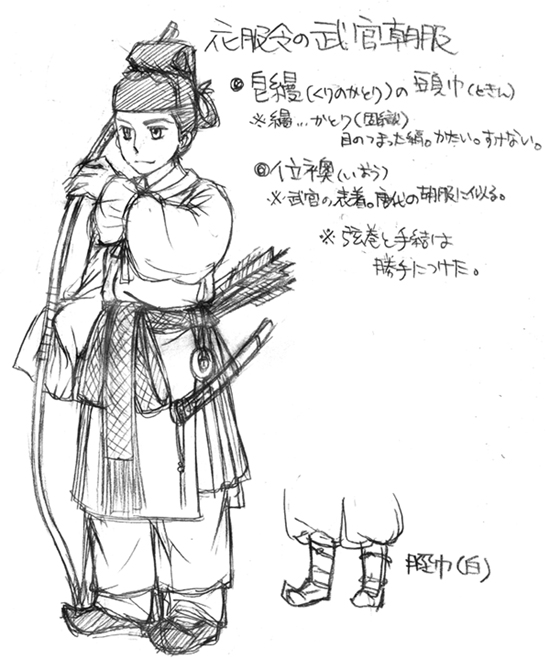 衣服令の武官朝服
◎皂縵(くりのかとり)の頭巾(ときん)
※縵…かとり(固織)
目のつまった絹。かたい。すけない。
◎位襖(いおう)
※武官の表着。唐代の朝服に似る。
※弦巻と手結は
勝手につけた。
脛巾(白)